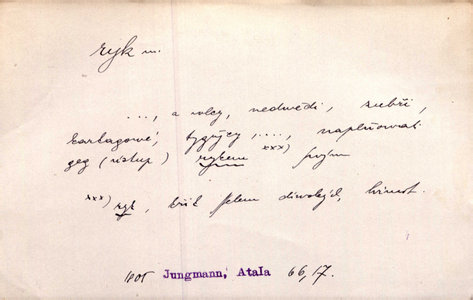 ryk m.
..., a wlcy, nedwědi, zubři,
karlagowé, tygrycy,...., naplňowat
geg (wstup) rykem xxx) swým
xxx) ryk, křik šelem diwokých,
1805 Jungmann, Atala 66,17.